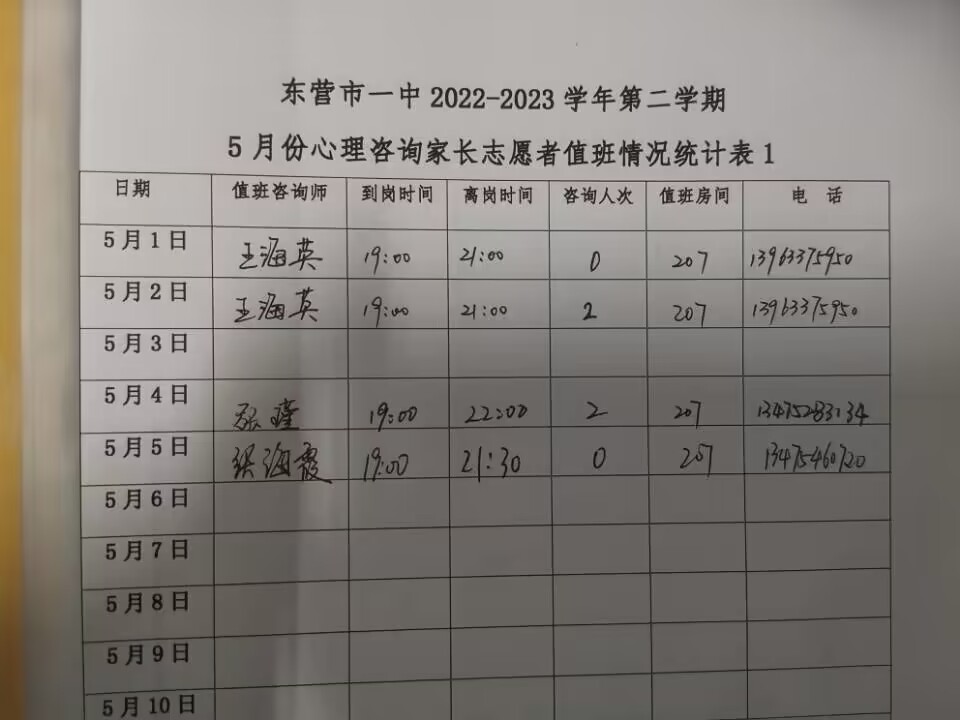 东营市一中2022-2023学年第二学期
5月份心理咨询家长志愿者值班情况统计表1
日期 值班咨询师 到岗时间 离岗时间 咨询人次 值班房间 电 话
5月1日 王海英 19:00 21:00 0 207 13963375950
5月2日 王海英 19:00 21:00 2 207 13963375950
5月3日
5月4日 张瑾 19:00 22:00 2 207 13475283134
5月5日 张海霞 19:00 21:30 0 207 13475460720
5月6日
5月7日
5月8日
5月9日
5月10日